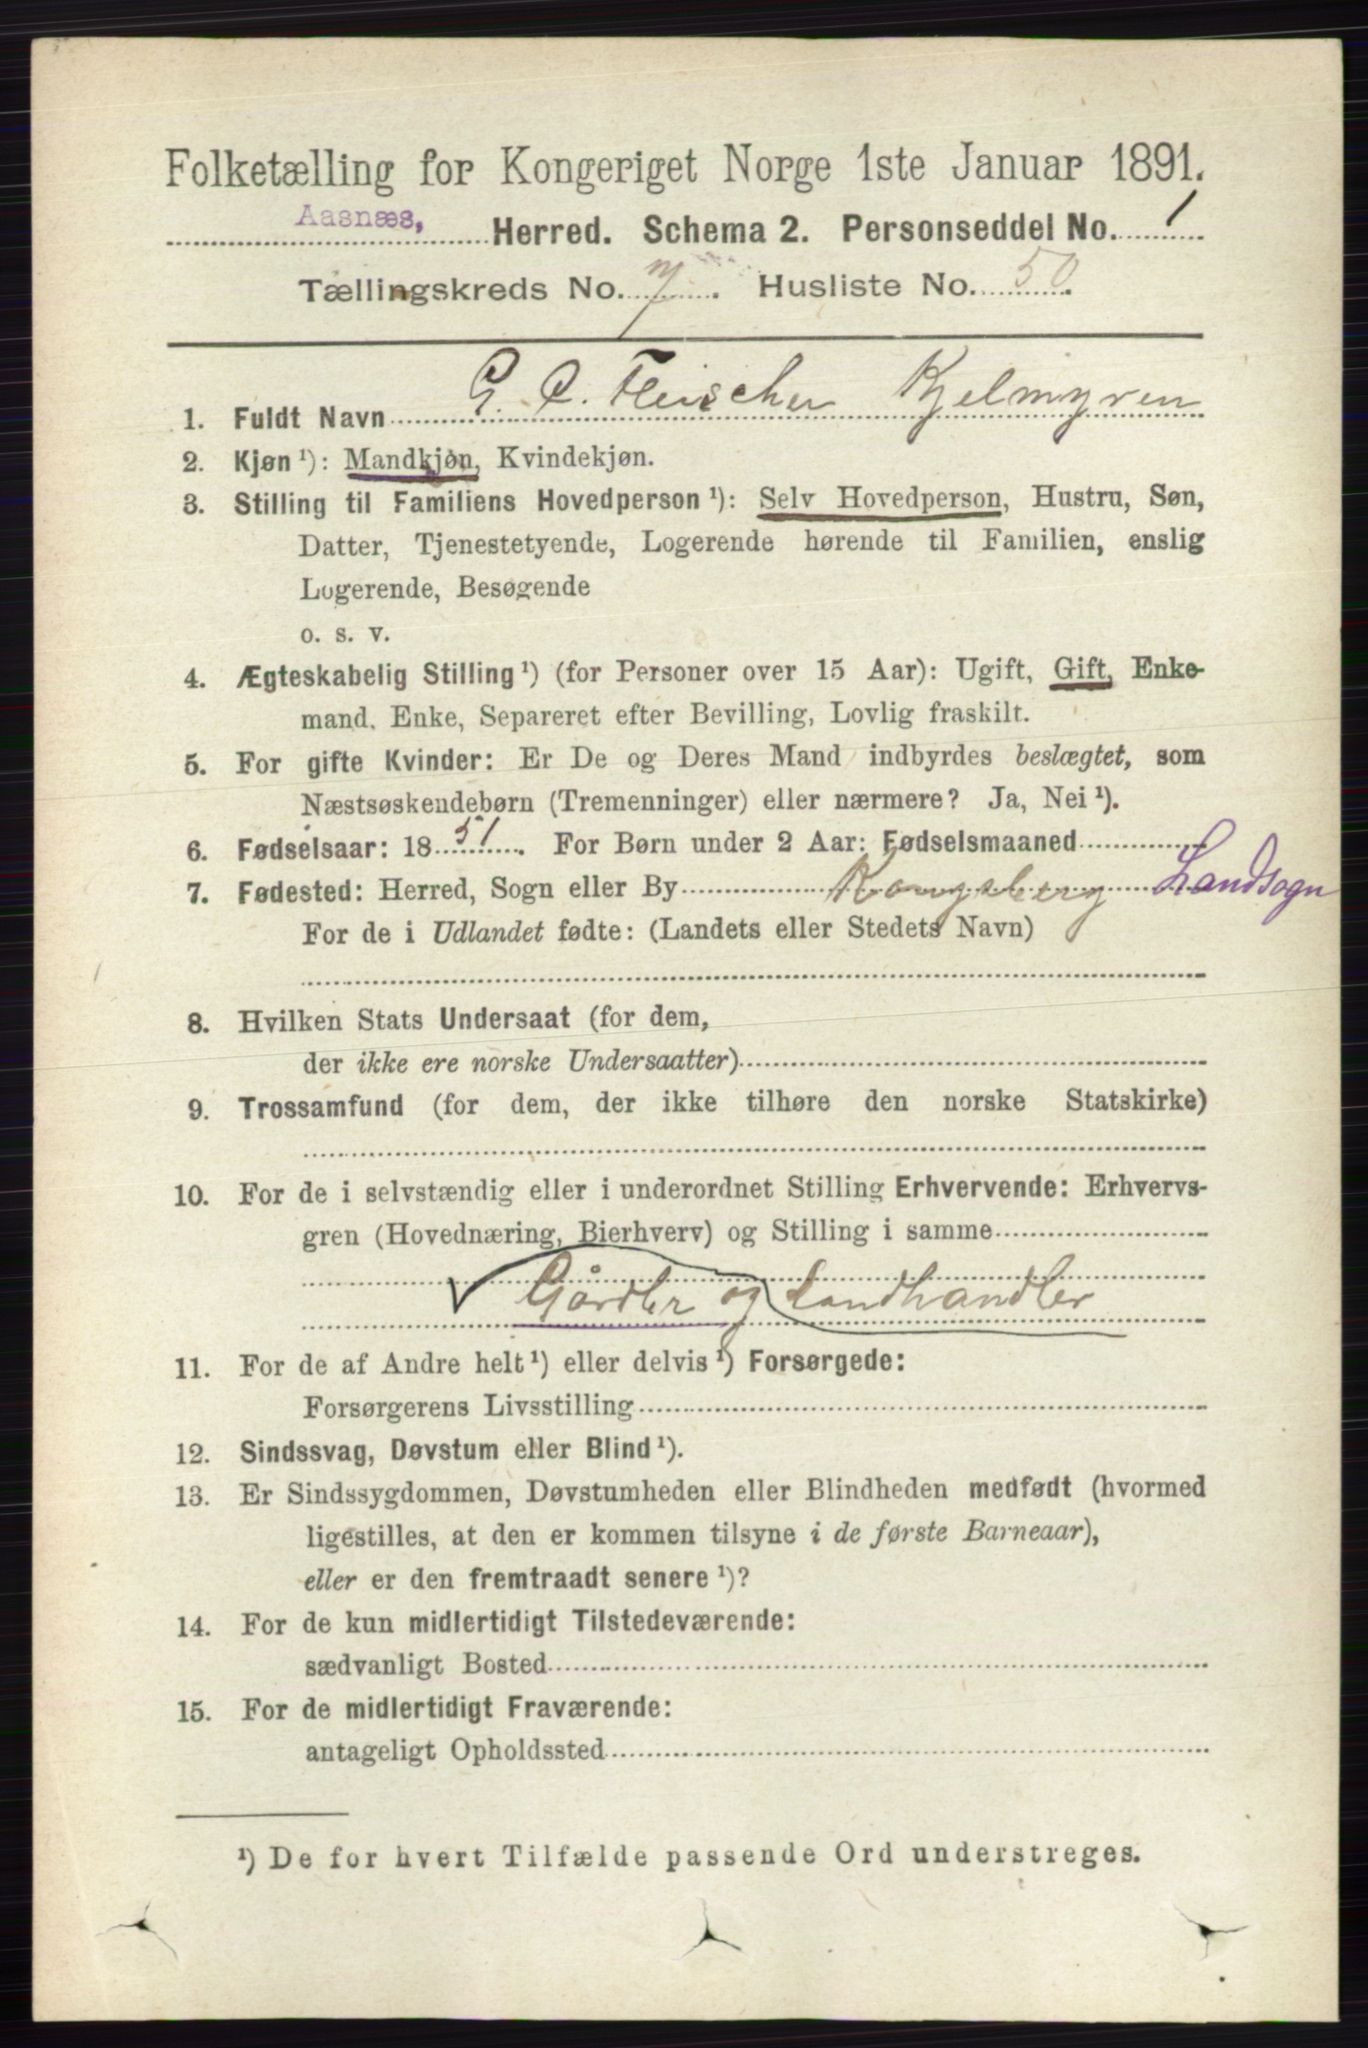 Folketælling for Kongeriget Norge 1ste Januar 1891.
Aasnæs, Herred. Schema 2. Personseddel No. 1
Tællingskreds No. 7. Husliste No. 50.
1. Fuldt Navn G. C. Fleischer Kjelmyren
2. Kjøn ¹): Mandkjøn, Kvindekjøn.
3. Stilling til Familiens Hovedperson ¹): Selv Hovedperson, Hustru, Søn,
Datter, Tjenestetyende, Logerende hørende til Familien, enslig
Logerende, Besøgende
o. s. v.
4. Ægteskabelig Stilling ¹) (for Personer over 15 Aar): Ugift, Gift, Enke-
mand, Enke, Separeret efter Bevilling, Lovlig fraskilt.
5. For gifte Kvinder: Er De og Deres Mand indbyrdes beslægtet, som
Næstsøskendebørn (Tremenninger) eller nærmere? Ja, Nei ¹).
6. Fødselsaar: 1851. For Børn under 2 Aar: Fødselsmaaned
7. Fødested: Herred, Sogn eller By Kongsberg Landsogn
For de i Udlandet fødte: (Landets eller Stedets Navn)
8. Hvilken Stats Undersaat (for dem,
der ikke ere norske Undersaatter)
9. Trossamfund (for dem, der ikke tilhøre den norske Statskirke)
10. For de i selvstændig eller i underordnet Stilling Erhvervende: Erhvervs-
gren (Hovednæring, Bierhverv) og Stilling i samme
Gårdbr og Landhandler
11. For de af Andre helt ¹) eller delvis ¹) Forsørgede:
Forsørgerens Livsstilling
12. Sindssvag, Døvstum eller Blind ¹).
13. Er Sindssygdommen, Døvstumheden eller Blindheden medfødt (hvormed
ligestilles, at den er kommen tilsyne i de første Barneaar),
eller er den fremtraadt senere ¹)?
14. For de kun midlertidigt Tilstedeværende:
sædvanligt Bosted
15. For de midlertidigt Fraværende:
antageligt Opholdssted
¹) De for hvert Tilfælde passende Ord understreges.